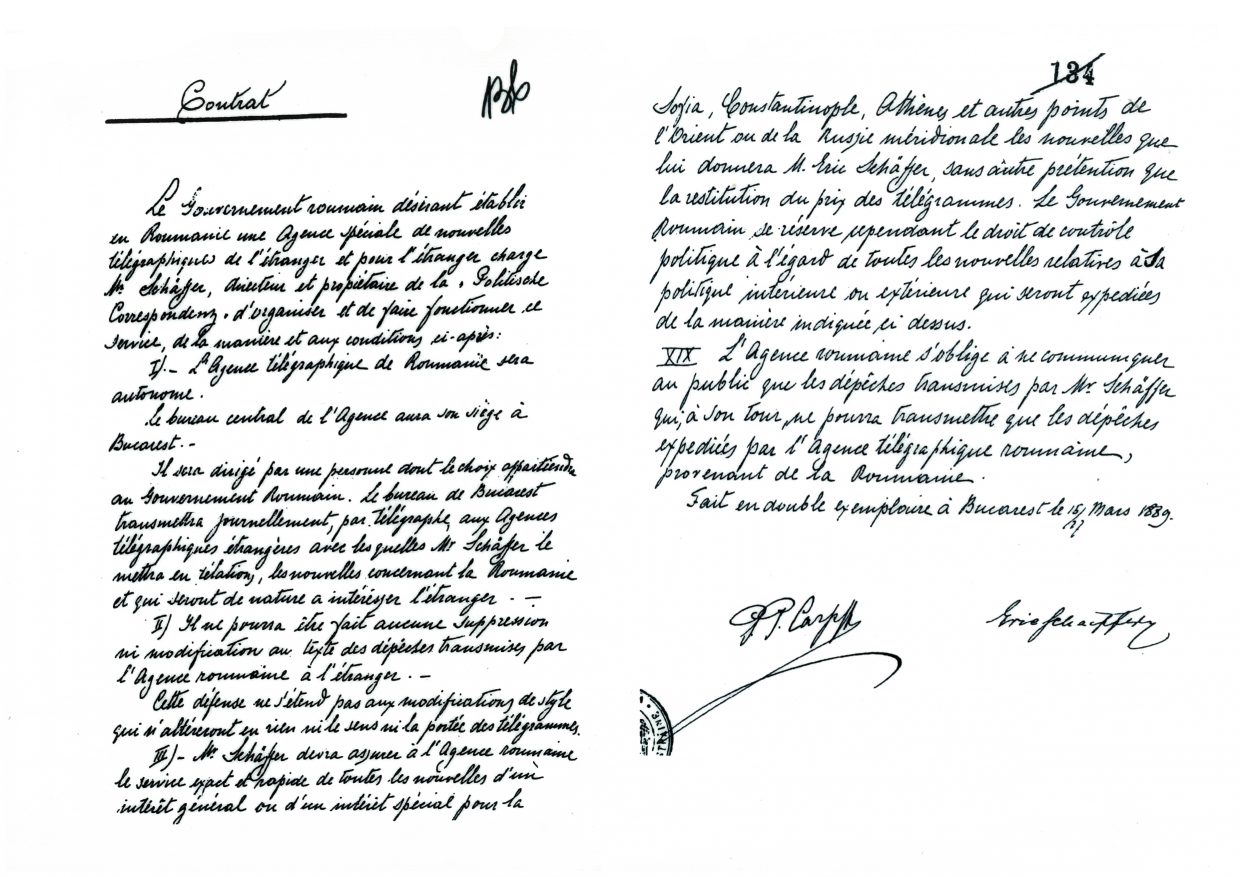 Contrat
Le Gouvernement roumain désirant établir
en Roumanie une Agence spéciale de nouvelles
télégraphiques de l'étranger et pour l'étranger charge
Mr. Schäffer, directeur et propiétaire de la "Politische
Correspondenz" d'organiser et de faire fonctionner ce
service, de la manière et aux conditions ci-après:
I).- L'Agence télégraphique de Roumanie sera
autonome.
Le bureau central de l'Agence aura son siège à
Bucarest.-
Il sera dirigé par une personne dont le choix appartiendra
au Gouvernement Roumain. Le bureau de Bucarest
transmettra journellement, par télégraphe, aux Agences
télégraphiques étrangères avec lesquelles Mr Schäffer le
mettra en rélations, les nouvelles concernant la Roumanie
et qui seront de nature a intéresser l'étranger. -
II) Il ne pourra être fait aucune suppression
ni modification au texte des dépêches transmises par
l'Agence roumaine à l'étranger. -
Cette défense ne s'étend pas aux modifications de style
qui n'altéreront en rien ni le sens ni la portée des télégrammes.
III)- Mr. Schäffer devra assurer à l'Agence roumaine
le service exact et rapide de toutes les nouvelles d'un
intérêt général ou d'un intérêt spécial pour la
134
Sofia, Constantinople, Athènes et autres points de
l'Orient ou de la Russie méridionale les nouvelles que
lui donnera M. Eric Schäffer, sans autre prétention que
la restitution du prix des télégrammes. Le Gouvernement
Roumain se réserve cependant le droit de contrôle
politique à l'égard de toutes les nouvelles relatives à sa
politique intérieure ou extérieure qui seront expediées
de la manière indiquée ci dessus.
XIX L'Agence roumaine s'oblige à ne communiquer
au public que les dépêches transmises par Mr Schäffer
qui, à son tour, ne pourra transmettre que les dépêches
expediées par l'Agence télégraphique roumaine,
provenant de la Roumanie.
Fait en double exemplaire à Bucarest le 15/27 Mars 1889.
P. P. Carp
Eric Schaeffer